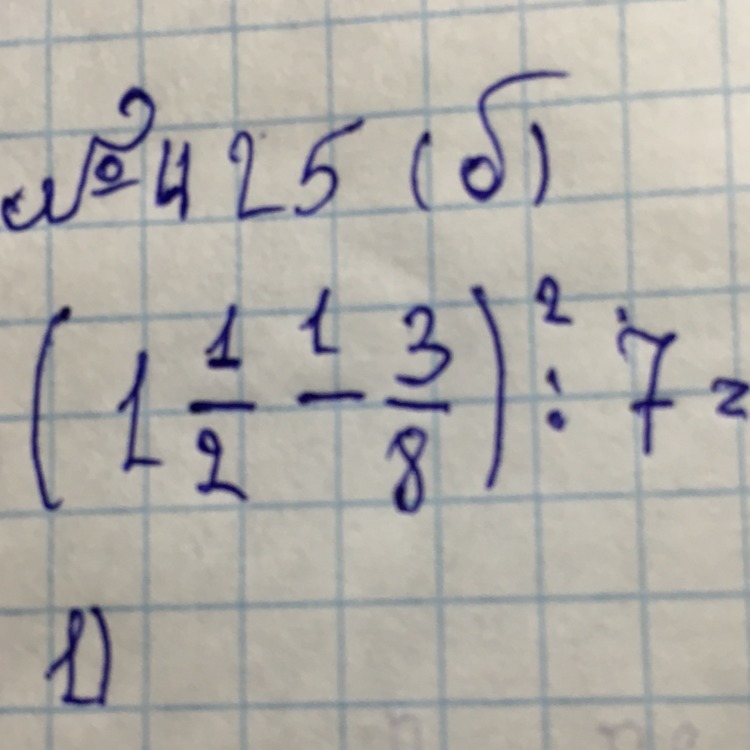 № 425 (б)
(1 1/2 -¹ 3/8) :² 7 =
1)